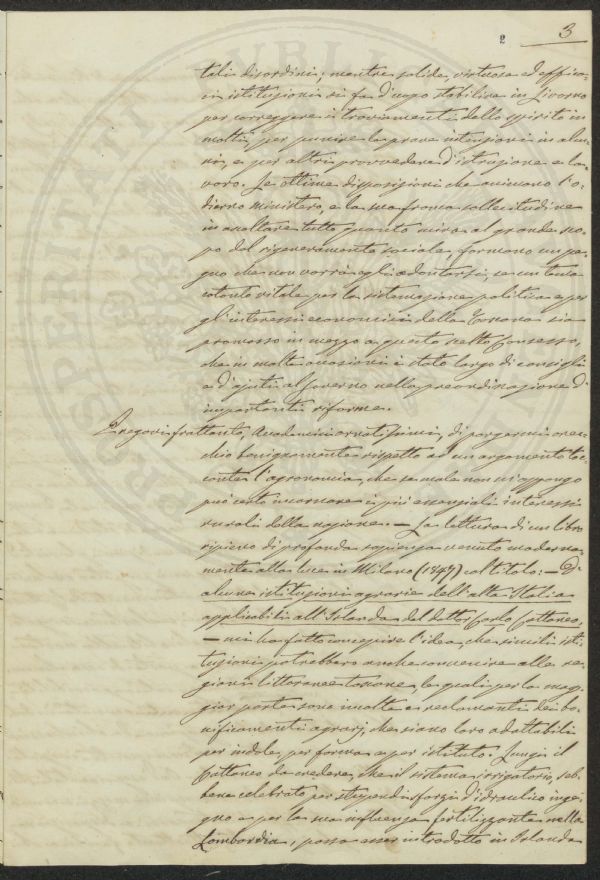 2 3
tali disordini; mentre solide, virtuose ed effica-
ci istituzioni si fa d'uopo stabilire in Livorno
per correggere i traviamenti dello spirito in
molti, per punire le prave intenzioni in alcu-
ni, e per altri provvedere d'istruzione e la-
voro. Le ottime disposizioni che animano l'o-
dierno Ministero, e la sua franca sollecitudine
in esaltare tutto quanto mira al grande sco-
po del rigeneramento sociale, formano un pe-
gno che non vorrà egli adontarsi, se un tema
cotanto vitale per la sistemazione politica e per
gl'interessi economici della Toscana sia
promosso in mezzo a questo dotto Consesso,
che in molte occasioni è stato largo di consigli
e d'ajuti al Governo nella preordinazione d'
importanti riforme.
Pregovi frattanto, Accademici ornatissimi, di porgermi orec-
chio benignamente rispetto ad un argomento toc-
cante l'agronomia, che se male non mi appongo
può certo incarnare i più essenziali interessi
rurali della nazione. — La lettura di un libro
ripieno di profonda sapienza venuto moderna-
mente alla luce in Milano (1847) col titolo: — D'
alcune istituzioni agrarie dell'alta Italia
applicabili all'Irlanda del dottor Carlo Cattaneo,
— mi ha fatto concepire l'idea, che simili isti-
tuzioni potrebbero anche convenire alle re-
gioni littoranee toscane, le quali per la mag-
gior parte sono incolte e reclamanti dei bo-
nificamenti agrarj, che siano loro adattabili
per indole, per forma e per istituto. Lungi il
Cattaneo da credere, che il sistema irrigatorio, seb-
bene celebrato per stupendi sforzi d'idraulico inge-
gno e per la sua influenza fertilizzante nella
Lombardia, possa esser introdotto in Irlanda
PROSPERITATI PUBLICAE